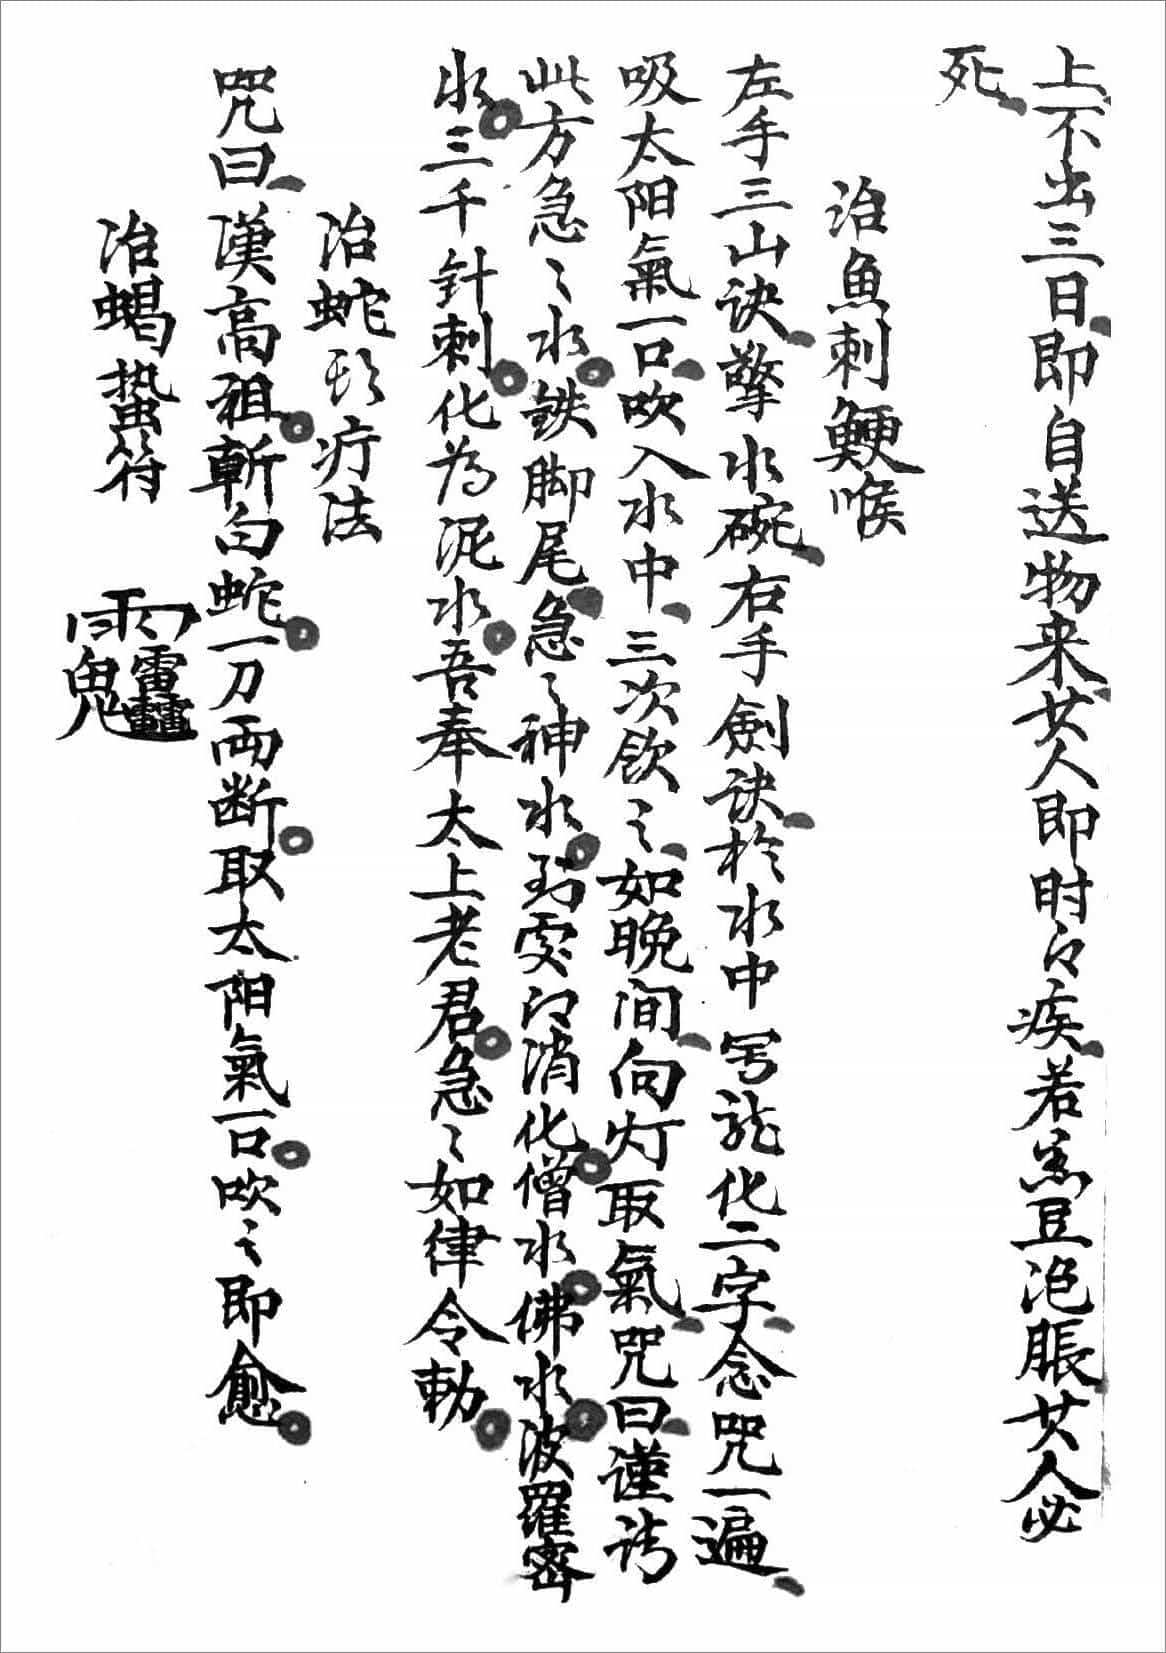 上不出三日即自送物来其人即时得疾若羔豆泡脹其人必
死
治魚刺鯁喉
左手三山诀擎水碗右手劍诀於水中写龍化二字念咒一遍
吸太阳氣一口吹入水中三次飲之如晚间向灯取氣咒曰谨请
此方急々水铁脚尾急々神水到處即消化僧水佛水波羅密
水三千針刺化為泥水吾奉太上老君急々如律令勅
治蛇形疔法
咒曰漢高祖斬白蛇一刀两断取太阳氣一口吹之即愈
治蝎蛰符